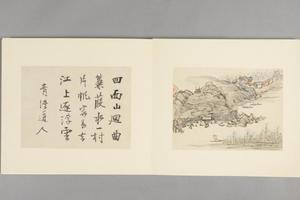 四面山迴曲
葭葭水一村
片帆容易去
江上逐浮雲
青溪道人